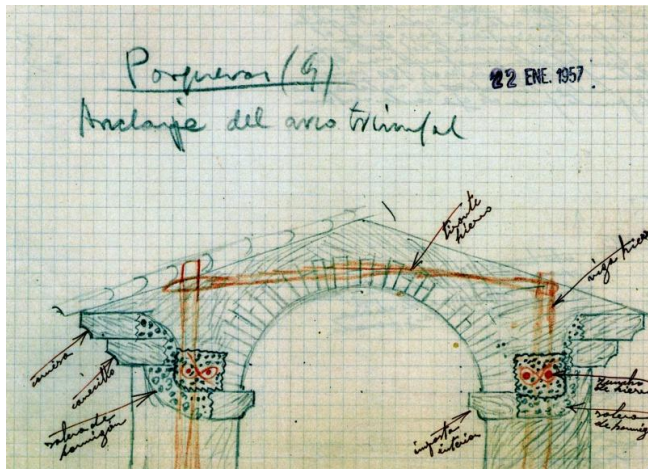 Porqueras (G)
22 ENE. 1957
Anclaje del arco triunfal
tirante
hierro
viga hierro
cornisa
canecillo
solera de
hormigón
imposta
interior
zuncho
de hierro
solera
de hormigón